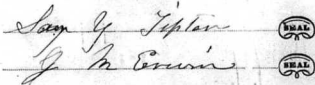 Say Y Tipton SEAL
J M Erwin SEAL